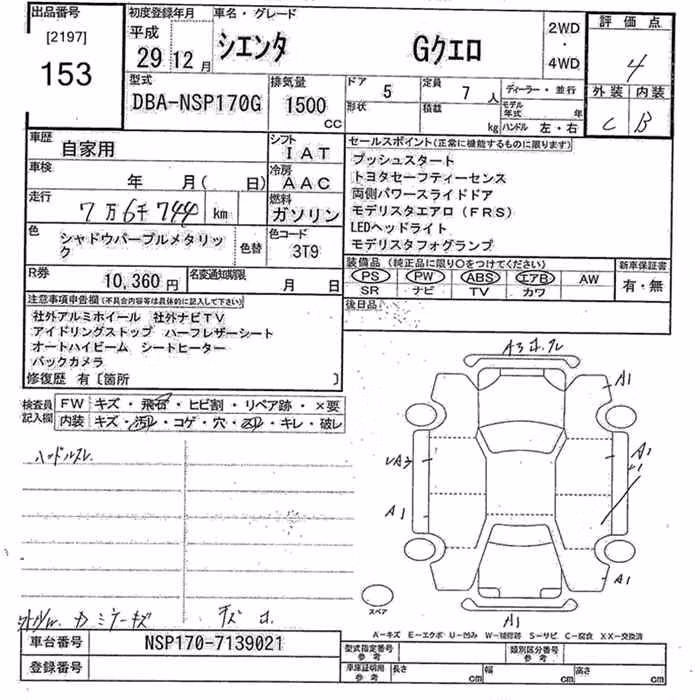 出品番号 初度登録年月 車名・グレード 評価点
[2197] 平成 2WD
153 29 12月 シエンタ Gクエロ ・
4WD 4
型式 排気量 ドア 5 定員 7人 ディーラー・並行 外装 内装
DBA-NSP170G 1500 cc 形状 積載 kg モデル年式 年 C B
ハンドル 左・右
車歴 自家用 シフト IAT セールスポイント(正常に機能するものに限ります)
車検 年 月( 日) 冷房 AAC プッシュスタート
トヨタセーフティーセンス
走行 7万6千744 km 燃料 ガソリン 両側パワースライドドア
モデリスタエアロ(FRS)
色 シャドウパープルメタリック 色替 色コード 3T9 LEDヘッドライト
モデリスタフォグランプ
R券 10,360円 名変通知期限 月 日 装備品(純正品に限り○をつけてください) 新車保証書
PS PW ABS エアB AW 有・無
SR ナビ TV カワ
注意事項申告欄(不具合内容等は具体的に記入して下さい) 後日品
社外アルミホイール 社外ナビTV
アイドリングストップ ハーフレザーシート
オートハイビーム シートヒーター
バックカメラ
修復歴 有〔箇所 〕
検査員記入欄 FW キズ・飛石・ヒビ割・リペア跡・×要
内装 キズ・汚れ・コゲ・穴・凹み・キレ・破レ
ハンドルスレ
A1
A1
A1
A1
A1
スペア
A-キズ E-エクボ U-凹み W-補修跡 S-サビ C-腐食 XX-交換済
車台番号 NSP170-7139021 型式指定番号 参考 類別区分番号 参考
登録番号 車庫証明用 参考 長さ cm 幅 cm 高さ cm